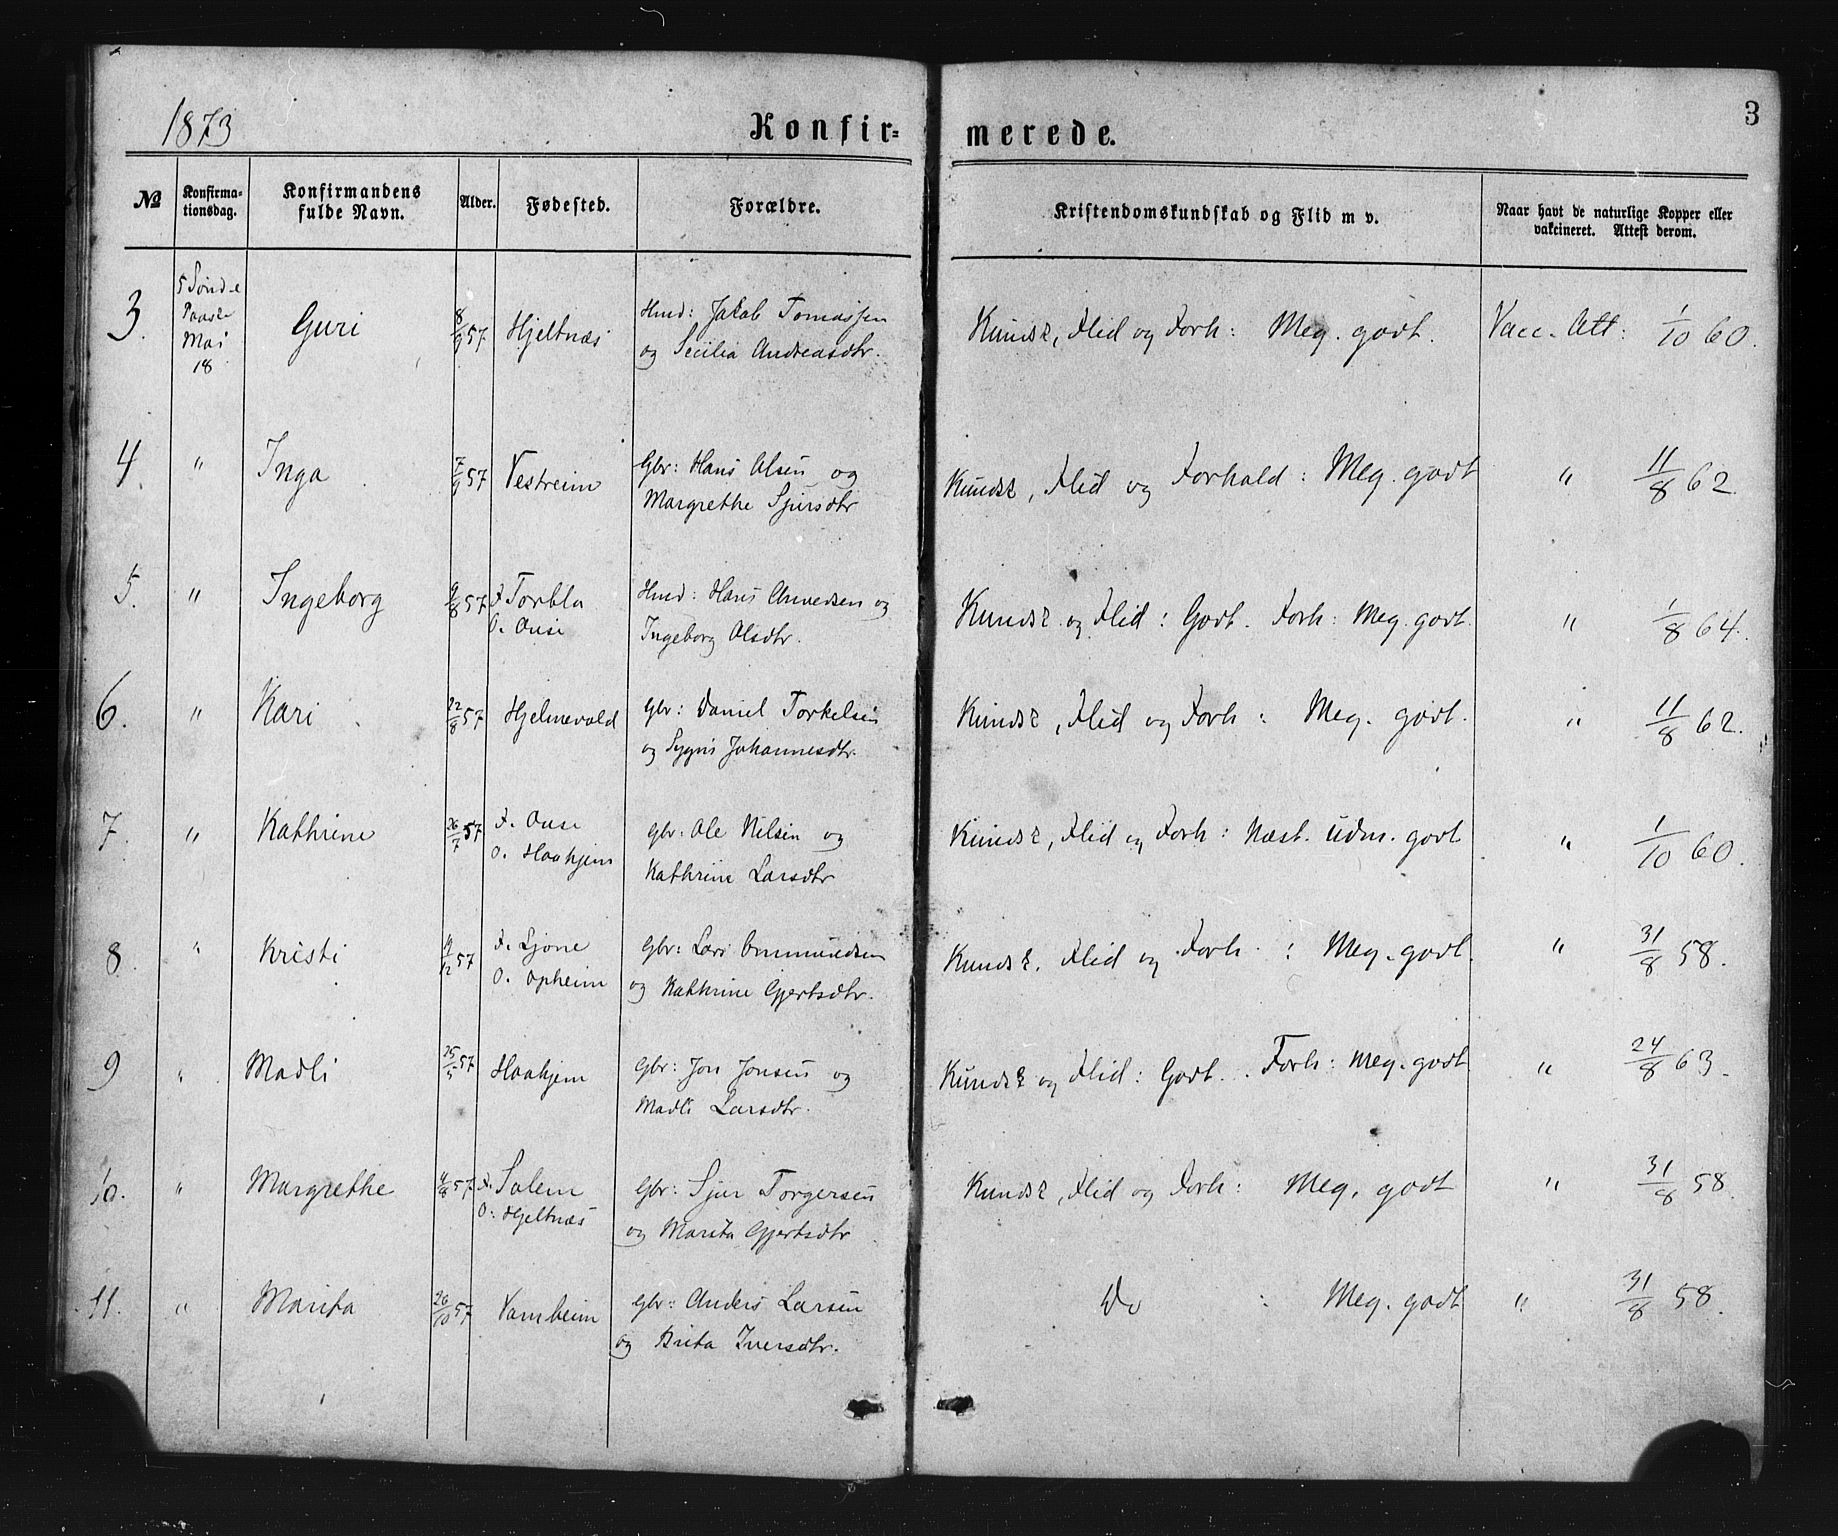 1873 Konfir= merede. 3
№ Konfirma-tionsdag. Konfirmandens fulde Navn. Alder. Fødested. Forældre. Kristendomskundskab og Flid m v. Naar havt de naturlige Kopper eller vakcineret. Attest derom.
3. 5 Sønd. e Paaske Mai 18 Guri 8/9 57 Hjeltnæs Hmd: Jakob Tomassen Kundsk, Flid og Forh: Meg. godt. Vacc. Att: 1/10 60.
og Secilia Andreasdtr.
4. " Inga 7/9 57 Vestreim Gbr: Hans Olsen og Kundsk, Flid og Forhold: Meg. godt " 11/8 62.
Margrethe Sjursdtr
5. " Ingeborg 9/8 57 F. Torbla Hmd: Hans Amundsen og Kundsk og Flid: Godt. Forh: Meg. godt. " 1/8 64.
O. Ouse Ingeborg Olsdtr.
6. " Kari 22/8 57 Hjelmevold Gbr: Daniel Torkelsen Kundsk, Flid og Forh: Meg. godt. " 11/8 62.
og Sygni Johannesdtr.
7. " Kathrine 26/7 57 F. Ouse Gbr: Ole Nilsen og Kundsk, Flid og Forh: Næst. udm. godt " 1/10 60.
O. Haahjem Kathrine Larsdtr
8. " Kristi 19/12 57 F. Ljone Gbr: Lars Ommundsen Kundsk. Flid og Forh.: Meg. godt. " 31/8 58.
O. Opheim og Kathrine Gjertsdtr.
9 " Madli 25/5 57 Haahjem Gbr: Jon Jonsen og Kundsk og Flid: Godt. Forh: Meg. godt " 24/8 63.
Madli Larsdtr.
10. " Margrethe 4/8 57 F. Solem Gbr: Sjur Torgersen Kundsk, Flid og Forh: Meg. godt " 31/8 58.
O: Hjeltnæs og Marita Gjertsdtr
11. " Marita 26/10 57 Vamheim Gbr: Anders Larsen Do : Meg. godt " 31/8 58.
og Brita Iversdtr.